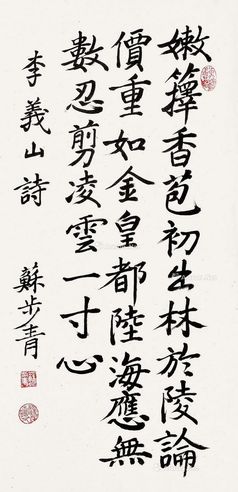 嫩籜香苞初出林於陵論
價重如金皇都陸海應無
數忍剪凌雲一寸心
李義山詩
蘇步青